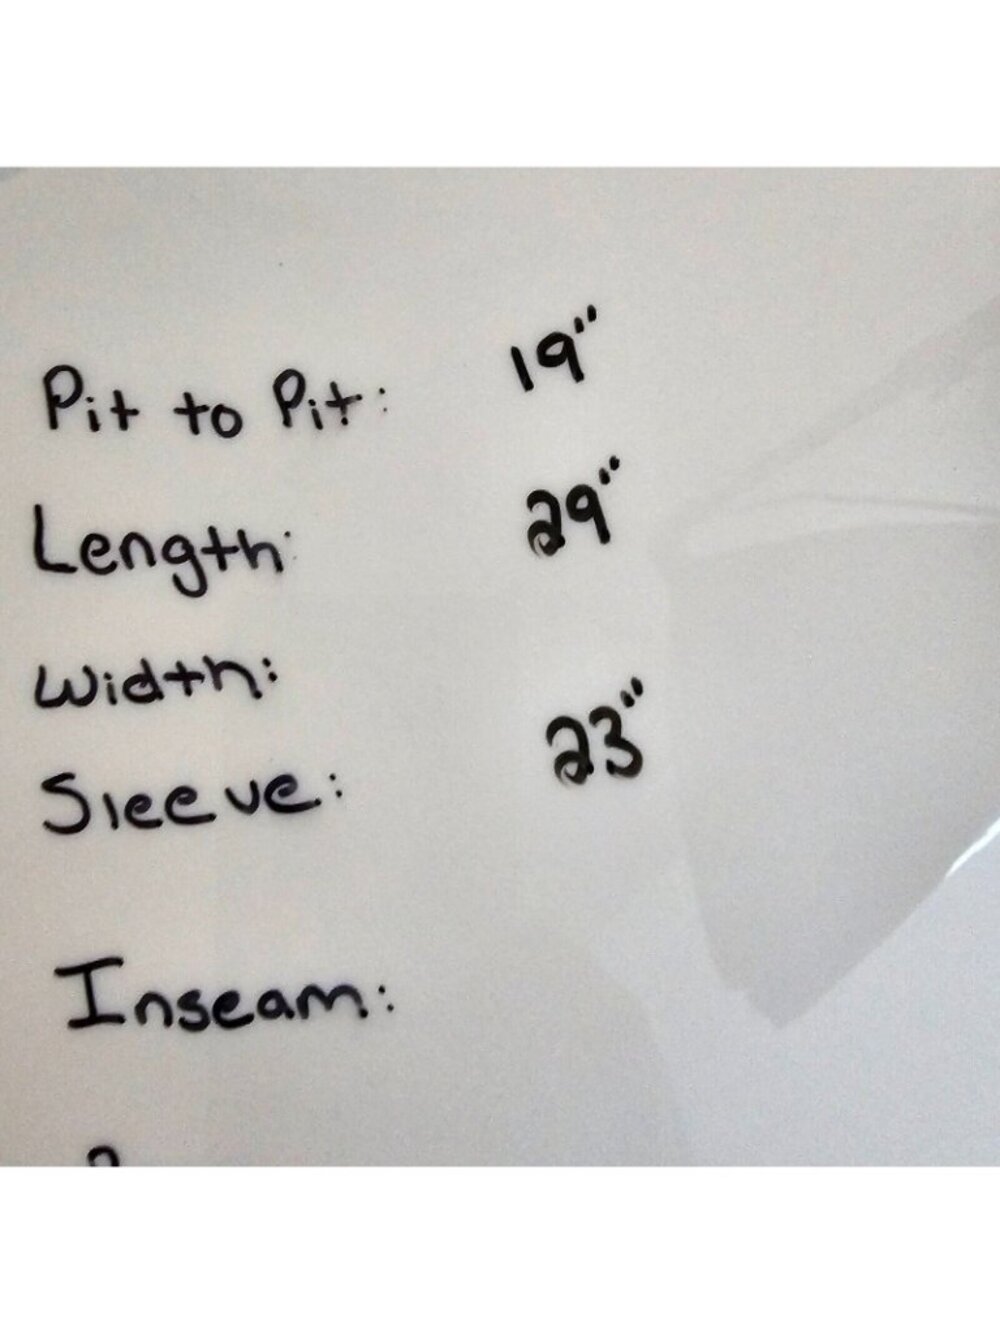 Pit to Pit: 19"
Length: 29"
Width:
Sleeve: 23"
Inseam: